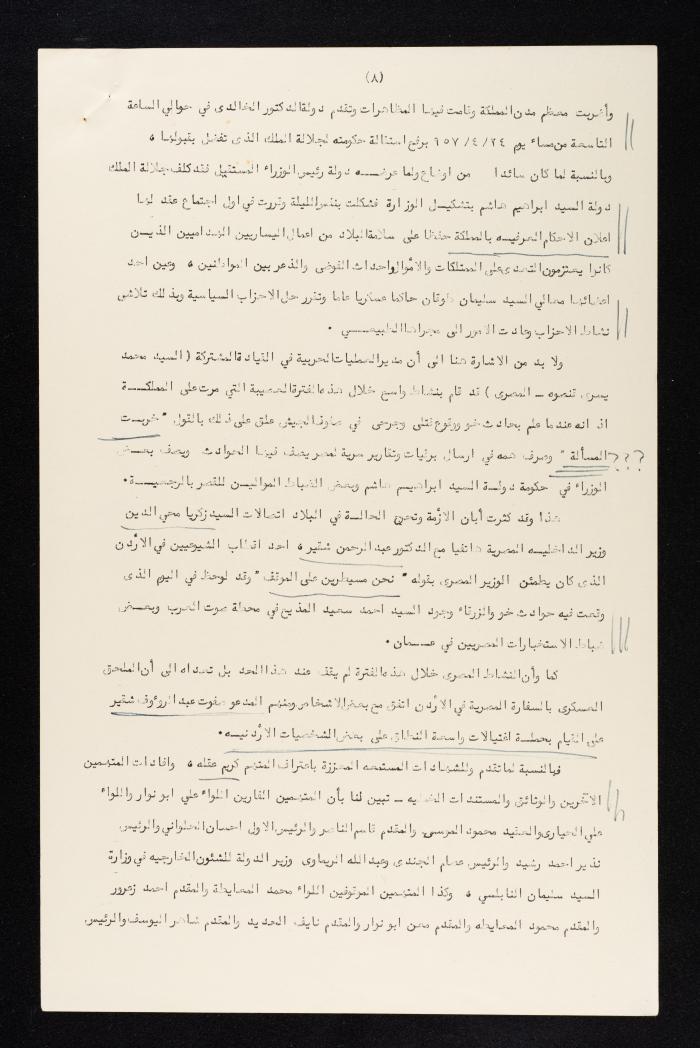 (٨)
وأضربت معظم مدن المملكة وقامت فيها المظاهرات وتقدم دولة الدكتور الخالدى في حوالي الساعة
التاسعة من مساء يوم ٢٤ /٤ /٩٥٧ برفع استقالة حكومته لجلالة الملك الذى تفضل بقبولها ٥
وبالنسبة لما كان سائدا من اوضاع ولما عرضـــه دولة رئيس الوزراء المستقيل فقد كلف جلالة الملك
دولة السيد ابراهيم هاشم بتشكيـل الوزارة فشكلت بنفس الليلة وقررت في اول اجتماع عقد لها
اعلان الاحكام العرفيـه بالمملكة حفظا على سلامة البلاد من اعمال اليساريين الهداميين الذيـن
كانوا يعتزمون التعدى على الممتلكات والأموال واحداث الفوضى والذعر بين المواطنين ٥ وعين احد
اعضائها معالي السيد سليمان طوقان حاكما عسكريا عاما وتقرر حل الاحزاب السياسية وبذلك تلاشى
نشاط الاحزاب وعادت الامور الى مجراها الطبيعــي ٠
ولا بد من الاشارة هنا الى أن مدير العمليات الحربية في القيادة المشتركة ( السيد محمد
يسرى قنصوه ـ المصرى ) قد قام بنشاط واسع خلال هذه الفترة العصيبة التي مرت على المملكــة
اذ انه عندما علم بحادث خو ووقوع قتلى وجرحى في صفوف الجيش علق على ذلك بالقول " خربـت
المسألة " وصرف همه في ارسال برقيات وتقارير سرية لمصر يصف فيها الحوادث ويصف بعـض ???
الوزراء في حكومة دولـة السيد ابراهيـم هاشم وبعض الضباط المواليـن للقصر بالرجعيــة ٠
هذا وقد كثرت أبان الأزمة وتحرج الحالـة في البلاد اتصالات السيد زكريا محي الدين
وزير الداخليـه المصرية هاتفيا مع الدكتور عبد الرحمن شقير ٥ احد اقطاب الشيوعيين في الأردن
الذى كان يطمئن الوزير المصرى بقوله " نحن مسيطرين على الموقف " وقد لوحظ في اليوم الذى
وقعت فيه حوادث خو والزرقاء وجود السيد احمد سعيد المذيع في محطة صوت العرب وبعـض
ضباط الاستخبارات المصريين في عــمان ٠
كما وأن النشاط المصرى خلال هذه الفترة لم يقف عند هذا الحد بل تعداه الى أن الملحق
العسكرى بالسفارة المصرية في الأردن اتفق مع بعض الاشخاص ومنهم المدعو صفوت عبد الرؤوف شقير
على القيام بحملـة اغتيالات واسعة النطاق على بعض الشخصيات الأردنيـه ٠
فبالنسبة لما تقدم والشهادات المستمعه المعززة باعتراف المتهم كريم عقله ٥ وافادات المتهمين
الآخرين والوثائق والمستندات الخطيه ـ تبين لنا بأن المتهمين الفارين اللواء علي ابو نوار واللواء
علي الحيارى والعقيد محمود الموسى والمقدم قاسم الناصر والرئيس الاول احسان الحلواني والرئيس
نذير احمد رشيد والرئيس عصام الجندى وعبد الله الريماوى وزير الدولة للشئون الخارجيه في وزارة
السيد سليمان النابلسي ٥ وكذا المتهمين الموقوفين اللواء محمد المعايطة والمقدم احمد زعرور
والمقدم محمود المعايطه والمقدم معن ابو نوار والمقدم نايف الحديد والمقدم شاهر اليوسف والرئيس